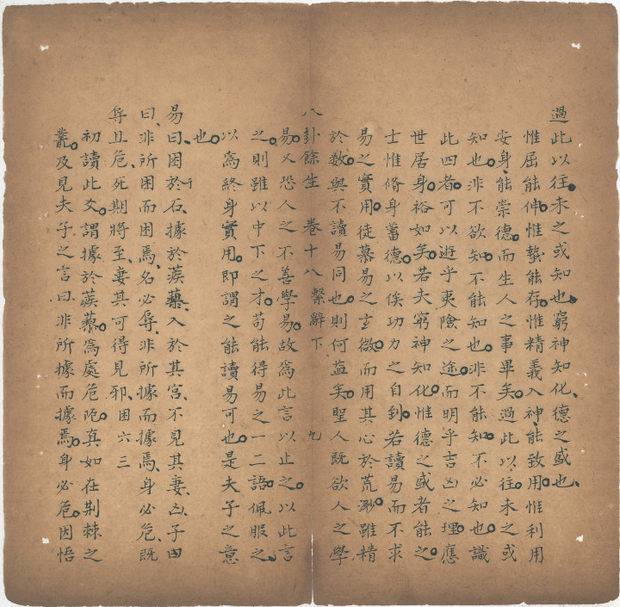 過此以往未之或知也窮神知化德之盛也
惟屈能伸惟蟄能存惟精義入神能致用惟利用
安身能崇德而生人之事畢矣過此以往未之或
知也非不欲知不能知也非不能知不必知也識
此四者可以遊乎夷險之途而明乎吉凶之理應
世居身裕如矣若夫窮神知化惟德之盛者能之
士惟脩身蓄德以俟功力之自到若讀易而不求
易之實用徒慕易之玄微而用其心於荒渺雖精
於數與不讀易同也則何益矣聖人既欲人之學
八卦餘生 卷十八 繫辭下 九
易又恐人之不善學易故為此言以止之以此言
之則雖以中下之才苟能得易之一二語佩服之
以為終身實用即謂之能讀易可也是夫子之意
也
易曰困於石據於蒺藜入於其宮不見其妻凶子
曰非所困而困焉名必辱非所據而據焉身必危既
辱且危死期將至妻其可得見邪困六三
初讀此爻謂據於蒺藜為處危阨真如在荊棘之
叢及見夫子之言曰非所據而據焉身必危因悟